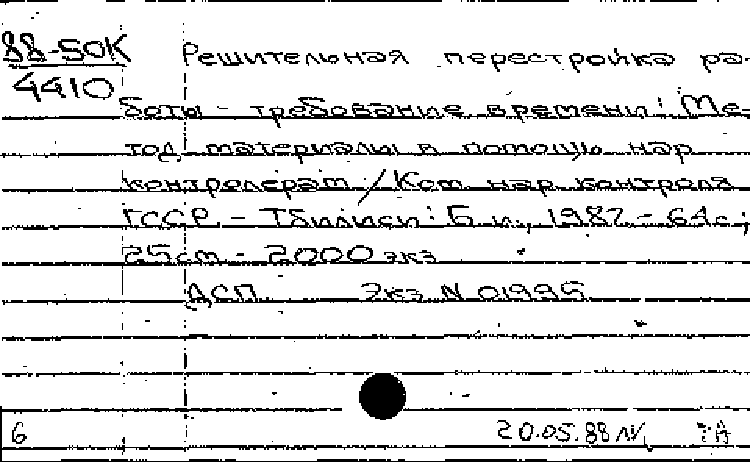 88-50К
4410
Решительная перестройка ра-
боты - требование времени: Ме-
тод. материалы в помощь нар.
контролерам / Ком. нар. контроля
ГССР. - Тбилиси: Б.и., 1987. - 64 с.;
25 см. - 2000 экз.
ДСП. Экз. N 01995
6
20.05.88